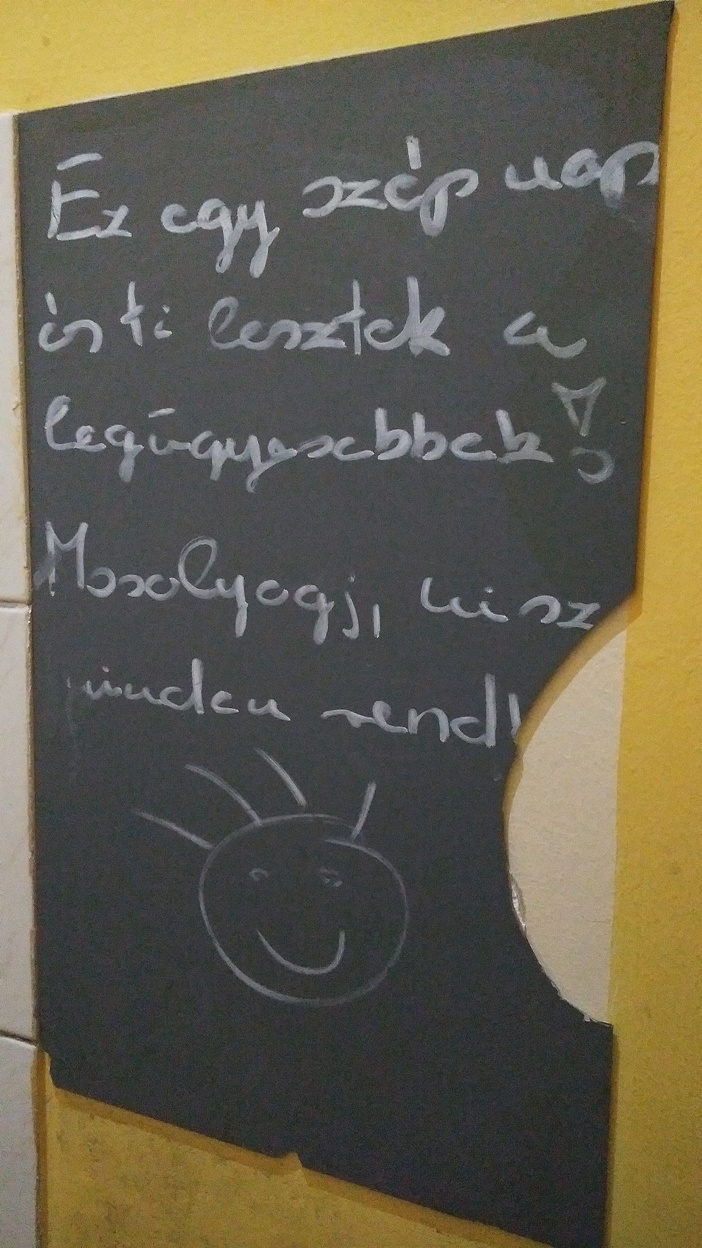 Ez egy szép nap
és ti lesztek a
legügyesebbek!
Mosolyogj, hisz
minden rend!